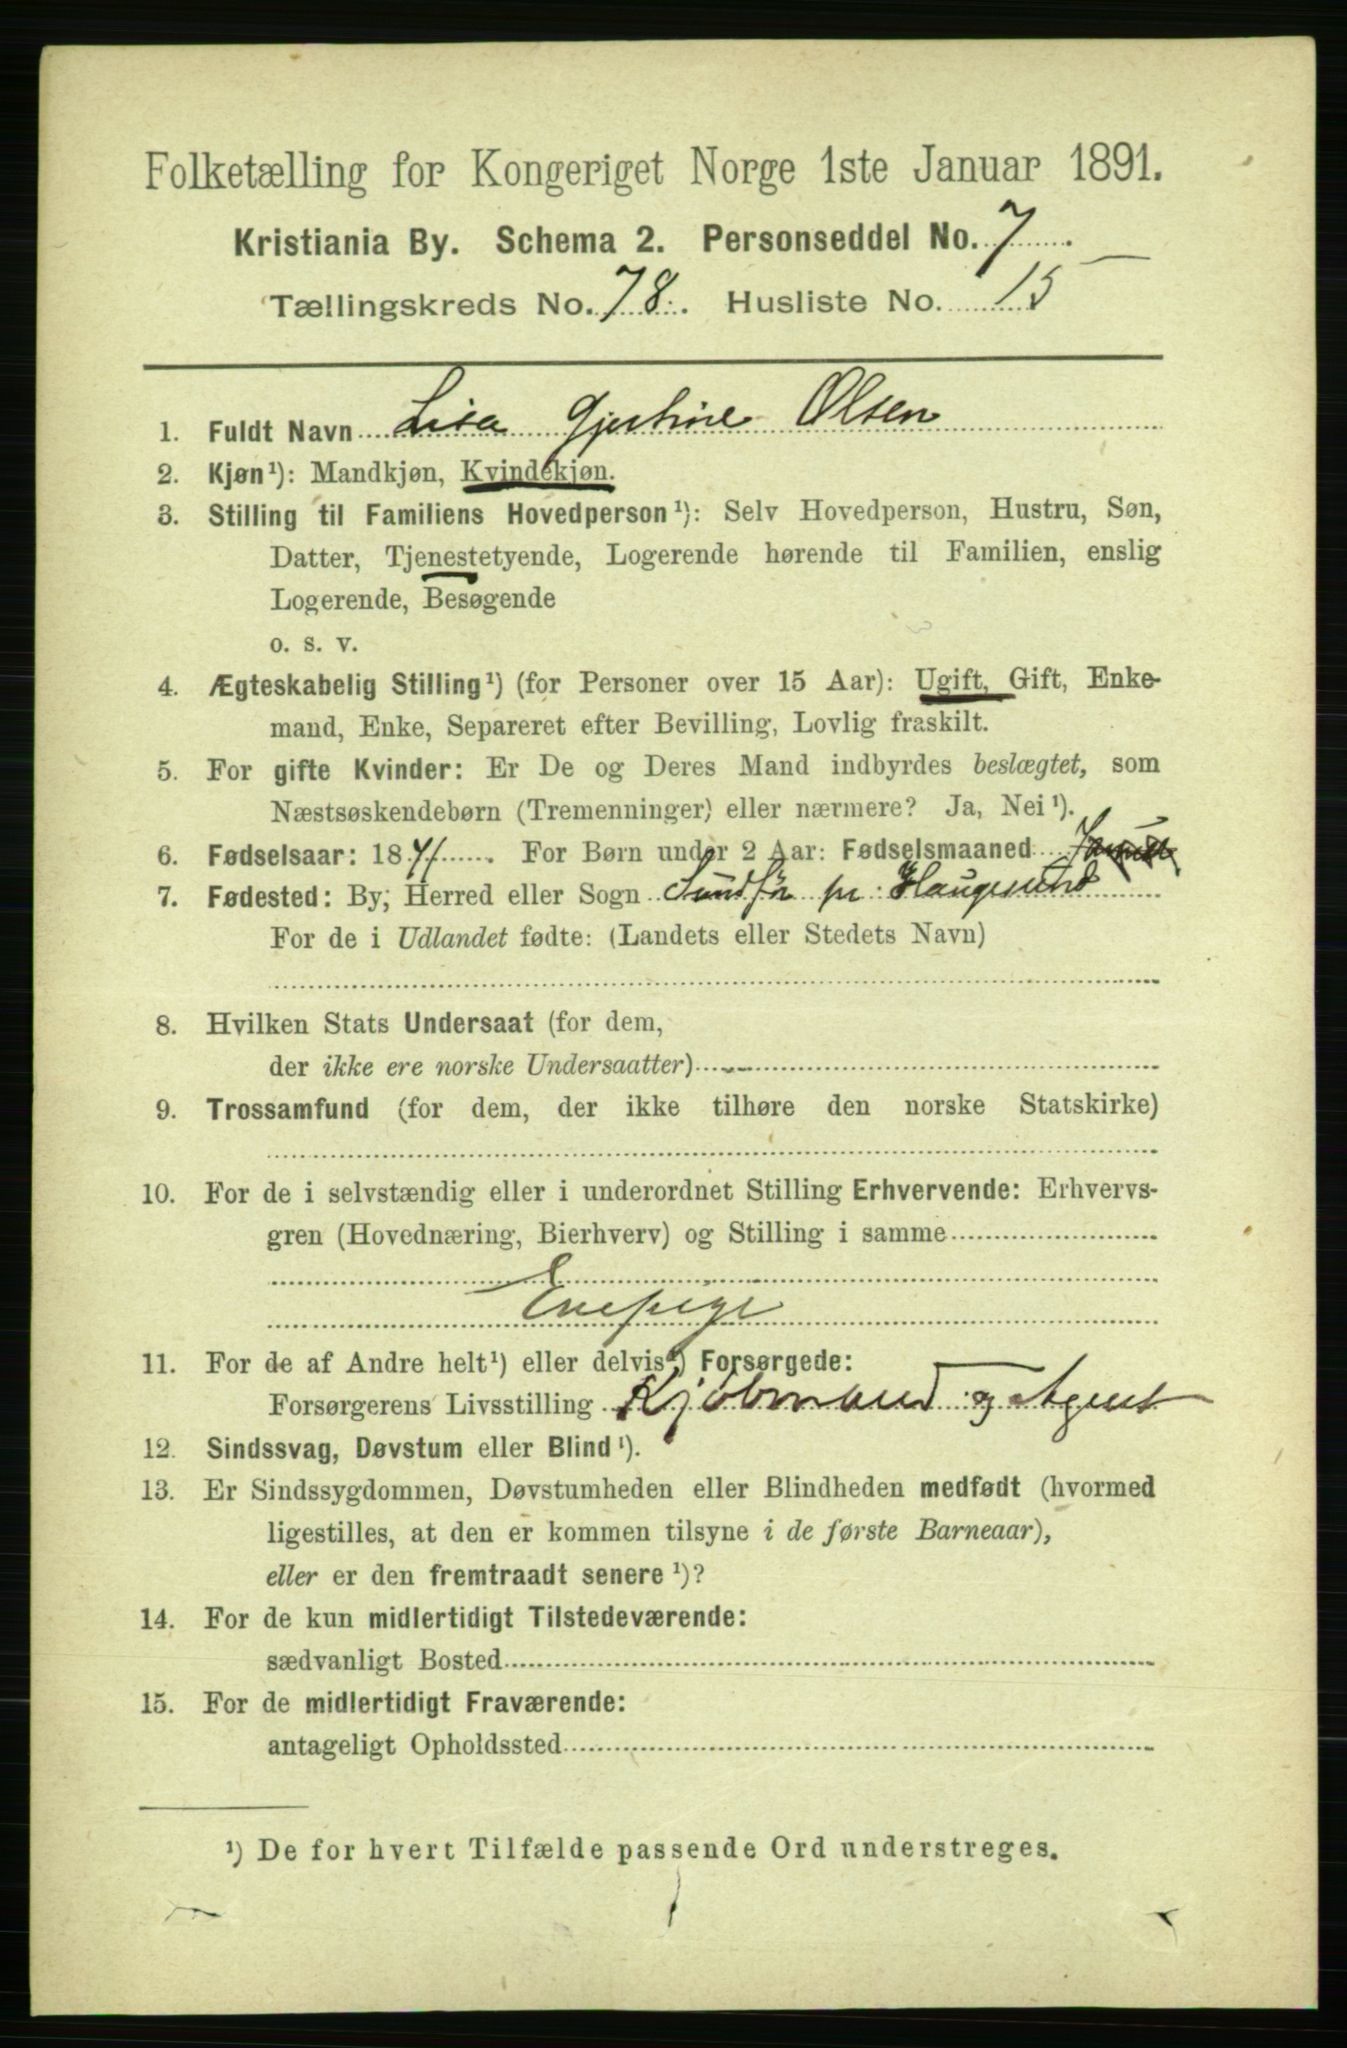 Folketælling for Kongeriget Norge 1ste Januar 1891.
Kristiania By. Schema 2. Personseddel No. 7
Tællingskreds No. 78. Husliste No. 15
1. Fuldt Navn Lisa Gjertine Olsen
2. Kjøn¹): Mandkjøn, Kvindekjøn.
3. Stilling til Familiens Hovedperson¹): Selv Hovedperson, Hustru, Søn,
Datter, Tjenestetyende, Logerende hørende til Familien, enslig
Logerende, Besøgende
o. s. v.
4. Ægteskabelig Stilling¹) (for Personer over 15 Aar): Ugift, Gift, Enke-
mand, Enke, Separeret efter Bevilling, Lovlig fraskilt.
5. For gifte Kvinder: Er De og Deres Mand indbyrdes beslægtet, som
Næstsøskendebørn (Tremenninger) eller nærmere? Ja, Nei¹).
6. Fødselsaar: 1871. For Børn under 2 Aar: Fødselsmaaned
7. Fødested: By, Herred eller Sogn Sundfør pr Haugesund
For de i Udlandet fødte: (Landets eller Stedets Navn)
8. Hvilken Stats Undersaat (for dem,
der ikke ere norske Undersaatter)
9. Trossamfund (for dem, der ikke tilhøre den norske Statskirke)
10. For de i selvstændig eller i underordnet Stilling Erhvervende: Erhvervs-
gren (Hovednæring, Bierhverv) og Stilling i samme
Enepige
11. For de af Andre helt¹) eller delvis¹) Forsørgede:
Forsørgerens Livsstilling Kjøbmand og Agent
12. Sindssvag, Døvstum eller Blind¹).
13. Er Sindssygdommen, Døvstumheden eller Blindheden medfødt (hvormed
ligestilles, at den er kommen tilsyne i de første Barneaar),
eller er den fremtraadt senere¹)?
14. For de kun midlertidigt Tilstedeværende:
sædvanligt Bosted
15. For de midlertidigt Fraværende:
antageligt Opholdssted
¹) De for hvert Tilfælde passende Ord understreges.